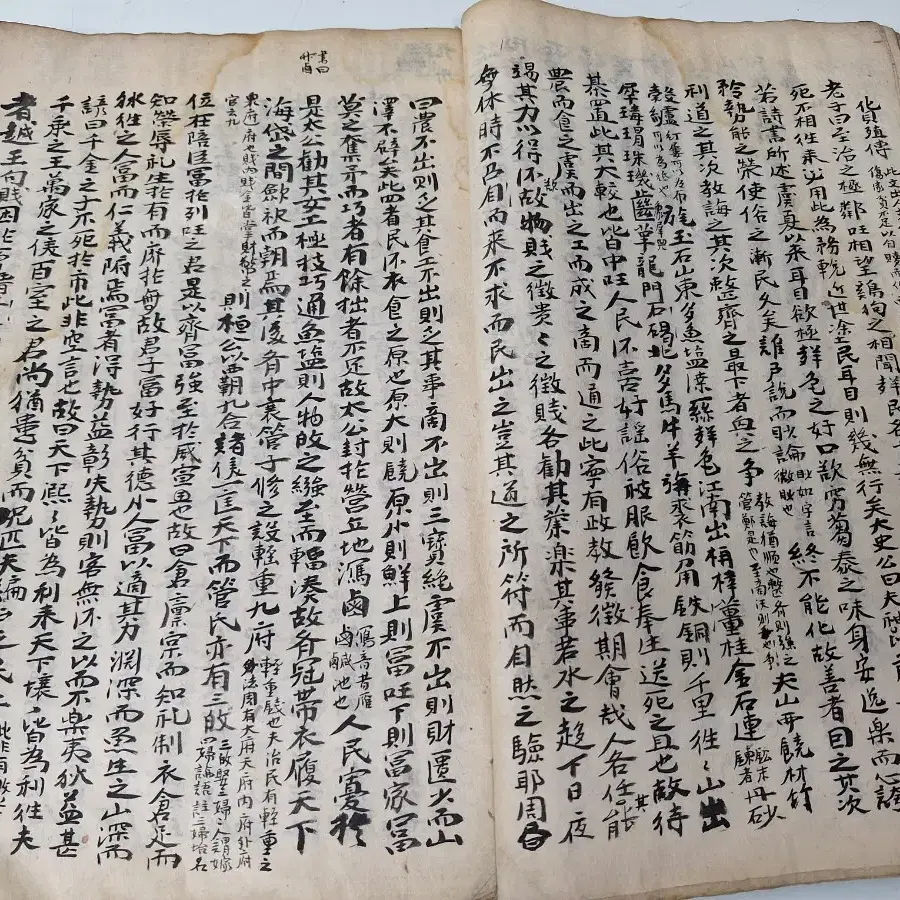 貨殖傳 此文出 傷家貧不足以自贖而作
老子曰至治之極鄰囯相望鷄狗之相聞民各
死不相徃來必用此為務輓近世塗民耳目則幾無行矣大史公曰夫神農前
若詩書所述虞夏以來耳目欲極聲色之好口欲窮芻豢之味身安逸樂而心誇
矜執能之榮使俗之漸民久矣雖户說而眇論 眇如字言徽眇也 終不能化故善者因之其次
利道之其次教誨之其次整齊之最下者與之爭 夫山西饒材竹
穀纑 旄玉石山東多魚塩漆絲聲色江南出枏梓薑桂金石連 鈆未鍊者 丹砂
犀瑇瑁珠璣齒革龍門石碣北多馬牛羊旃裘筋角鉄銅則千里徃〻山出
棊置此其大較也皆中囯人民所喜好謠俗被服飮食奉生送死之具也故待
農而食之虞而出之工而成之商而通之此寧有政教發徵期會哉人各任其能
竭其力以得所欲故物賤之徵貴〻之徵賤各勸其業樂其事若水之趍下日夜
無休時不召自來不求而民出之豈其道之所符而自然之驗耶周書
書曰
曰農不出則乏其食工不出則乏其事商不出則三寶絶虞不出則財匱少而山
澤不辟矣此四者民所衣食之原也原大則饒原小則鮮上則富囯下則富家富
莫之奪予而巧者有餘拙者不足故太公封於營丘地潟鹵 潟音昔 鹵鹹地也 人民寡於
是太公勸其女工極技巧通魚塩則人物故之繦至而輻湊故齊冠帶衣履天下
海岱之間歛袂而朝焉其後齊中衰管子修之設軽重九府 則桓公以覇九合諸侯一匡天下而管氏亦有三故
位在陪臣富於列囯之君是以齊富強至於威宣也故曰倉廪実而知礼制衣食足而
知榮辱礼生於有而廃於無故君子富好行其德小人富以適其力淵深而魚生之山深而
獣徃之人富而仁義附焉富者得勢益彰失勢則客無所之以而不樂夷狄益甚
諺曰千金之子不死於市此非空言也故曰天下熙〻皆為利來天下壤〻皆為利徃夫
千乘之王萬家之侯百室之君尚猶患貧而况匹夫編户之民
者越王句賤困於會